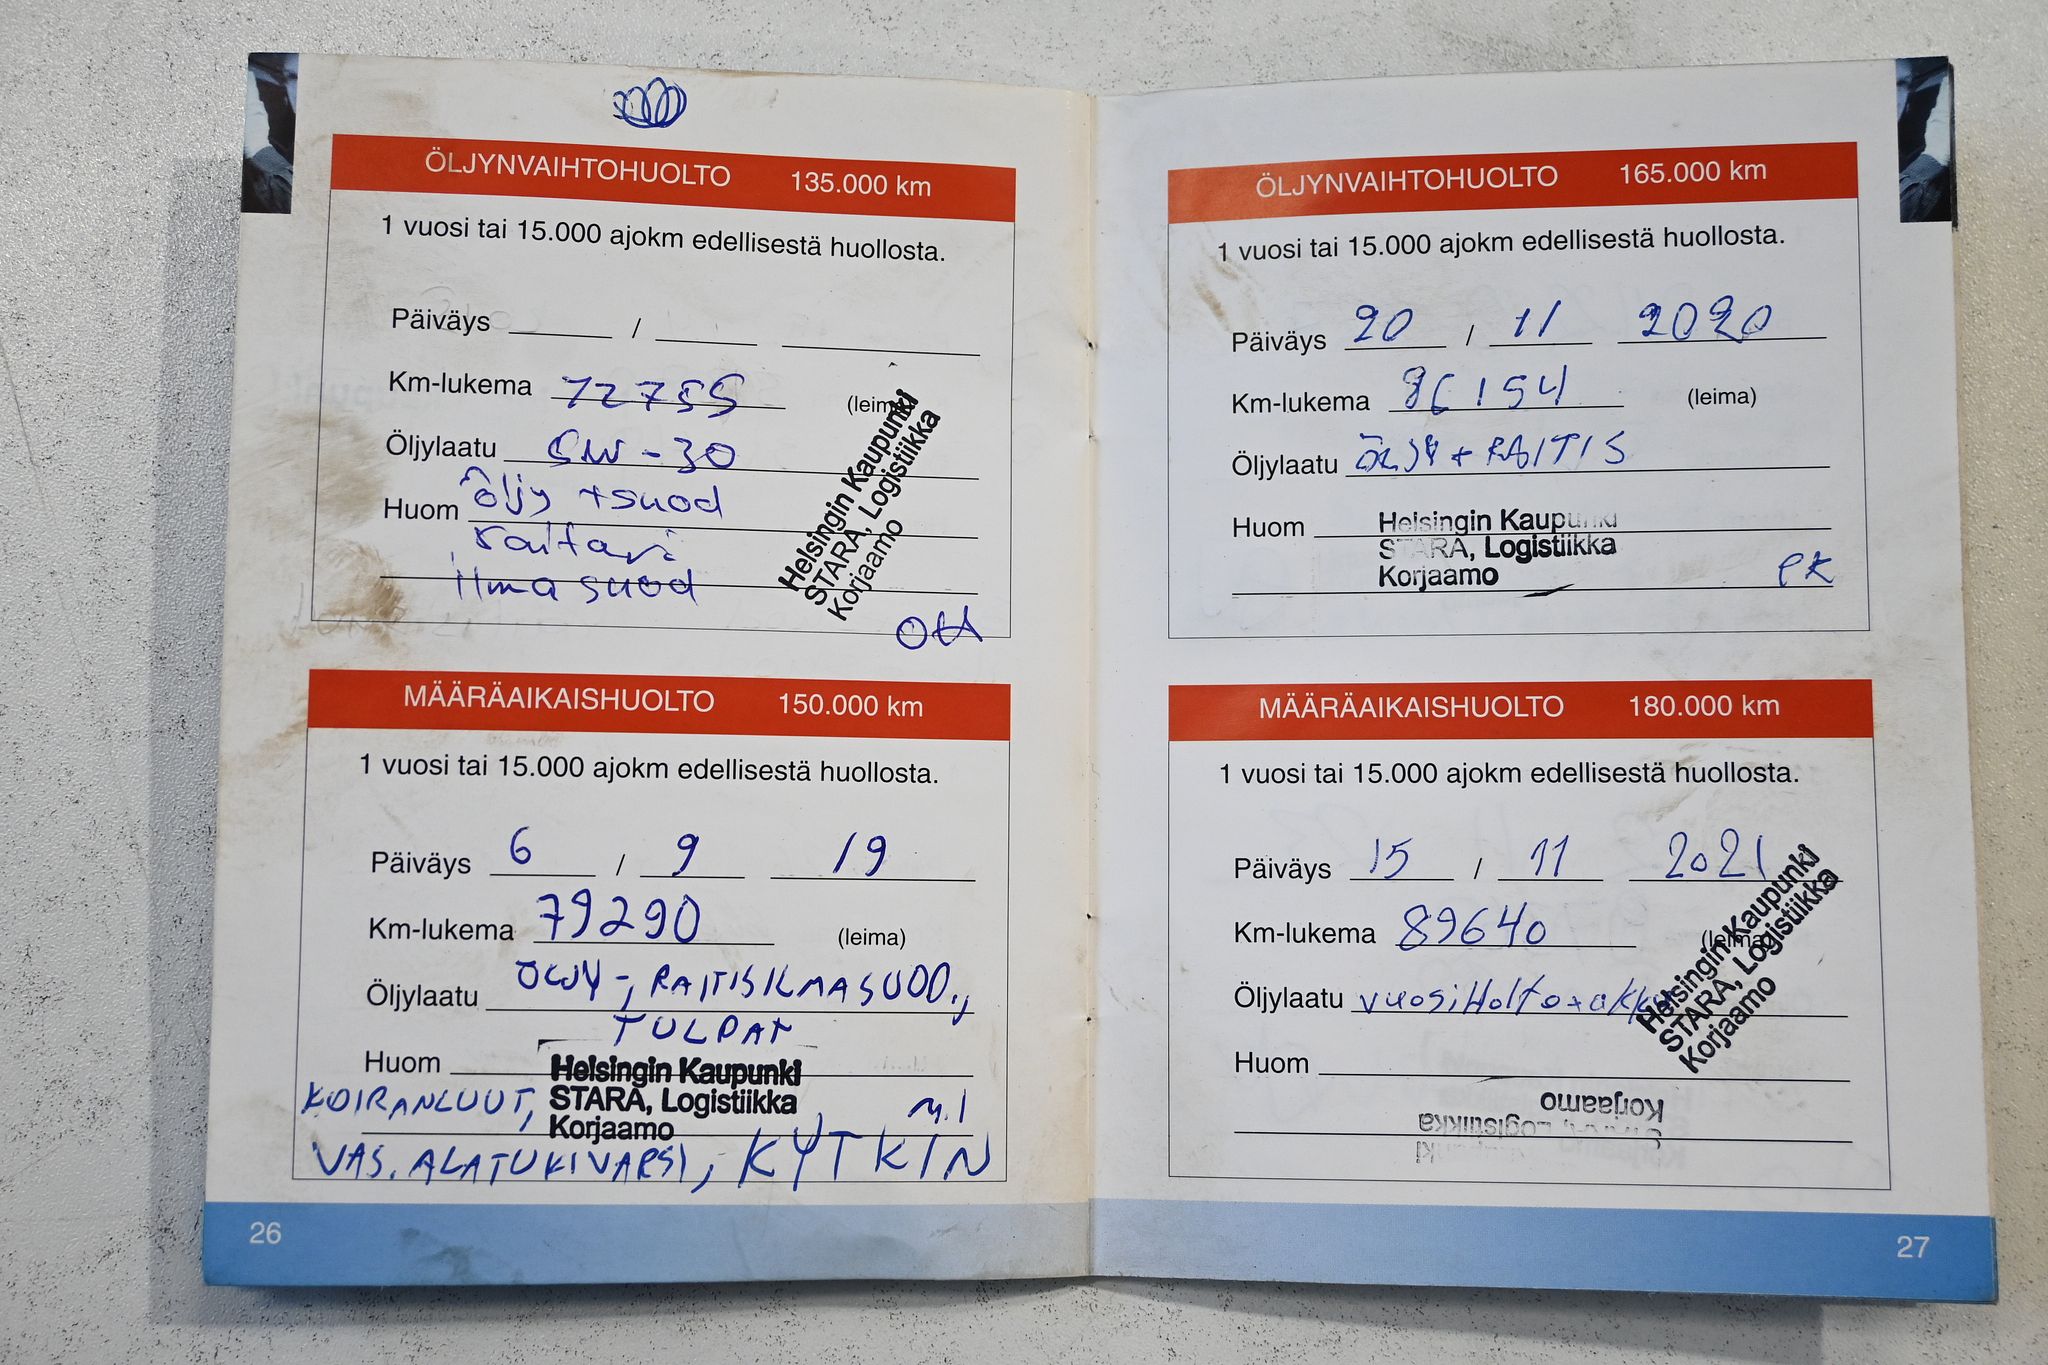 ÖLJYNVAIHTOHUOLTO 135.000 km
1 vuosi tai 15.000 ajokm edellisestä huollosta.
Päiväys /
Km-lukema 72755 (leima)
Öljylaatu 5W-30
Huom öljy + suod
raitari
ilmasuod
Helsingin Kaupunki
STARA, Logistiikka
Korjaamo
MÄÄRÄAIKAISHUOLTO 150.000 km
1 vuosi tai 15.000 ajokm edellisestä huollosta.
Päiväys 6 / 9 19
Km-lukema 79290 (leima)
Öljylaatu ÖLJY-, RAITISILMASUOD.,
TULPAT
Huom
Helsingin Kaupunki
STARA, Logistiikka
Korjaamo
KOIRANLUUT,
VAS. ALATUKIVARSI, KYTKIN
26
ÖLJYNVAIHTOHUOLTO 165.000 km
1 vuosi tai 15.000 ajokm edellisestä huollosta.
Päiväys 20 / 11 2020
Km-lukema 86154 (leima)
Öljylaatu ÖLJY + RAITIS
Huom
Helsingin Kaupunki
STARA, Logistiikka
Korjaamo
PK
MÄÄRÄAIKAISHUOLTO 180.000 km
1 vuosi tai 15.000 ajokm edellisestä huollosta.
Päiväys 15 / 11 2021
Km-lukema 89640 (leima)
Öljylaatu vuosiHolto + akku
Helsingin Kaupunki
STARA, Logistiikka
Korjaamo
Huom
Korjaamo
Logistiikka
27